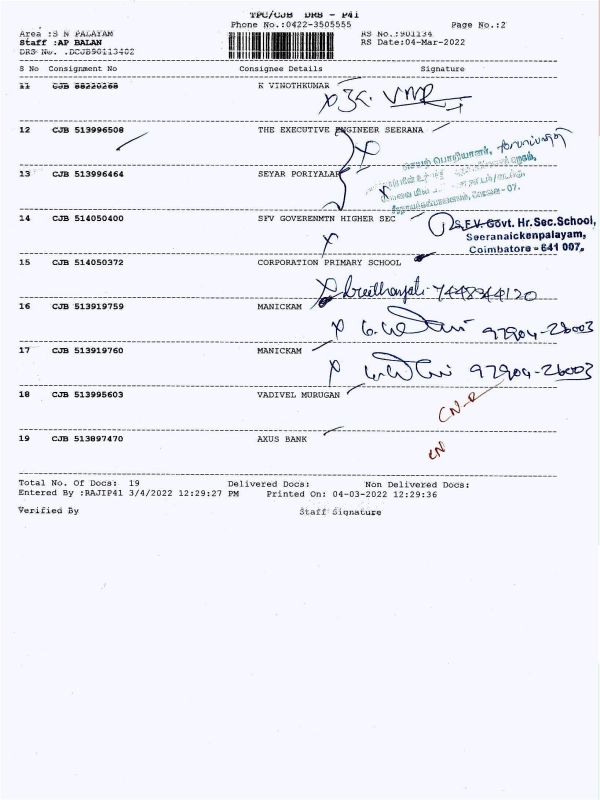 TPC/CJB DRS - P41
Phone No.:0422-3505555 Page No.:2
Area :S N PALAYAM RS No.:901134
Staff :AP BALAN RS Date:04-Mar-2022
DRS No. .DCJB90113402
S No Consignment No Consignee Details Signature
11 CJB 88220268 K VINOTHKUMAR
12 CJB 513996508 THE EXECUTIVE ENGINEER SEERANA
13 CJB 513996464 SEYAR PORIYALAR
கோவை - 07.
14 CJB 514050400 SFV GOVERENMTN HIGHER SEC
S.F.V. Govt. Hr.Sec.School,
Seeranaickenpalayam,
Coimbatore - 641 007.
15 CJB 514050372 CORPORATION PRIMARY SCHOOL
7448944120
16 CJB 513919759 MANICKAM
97904-26003
17 CJB 513919760 MANICKAM
97904-26003
18 CJB 513995603 VADIVEL MURUGAN
CN-R
19 CJB 513897470 AXUS BANK
CN
Total No. Of Docs: 19 Delivered Docs: Non Delivered Docs:
Entered By :RAJIP41 3/4/2022 12:29:27 PM Printed On: 04-03-2022 12:29:36
Verified By Staff Signature